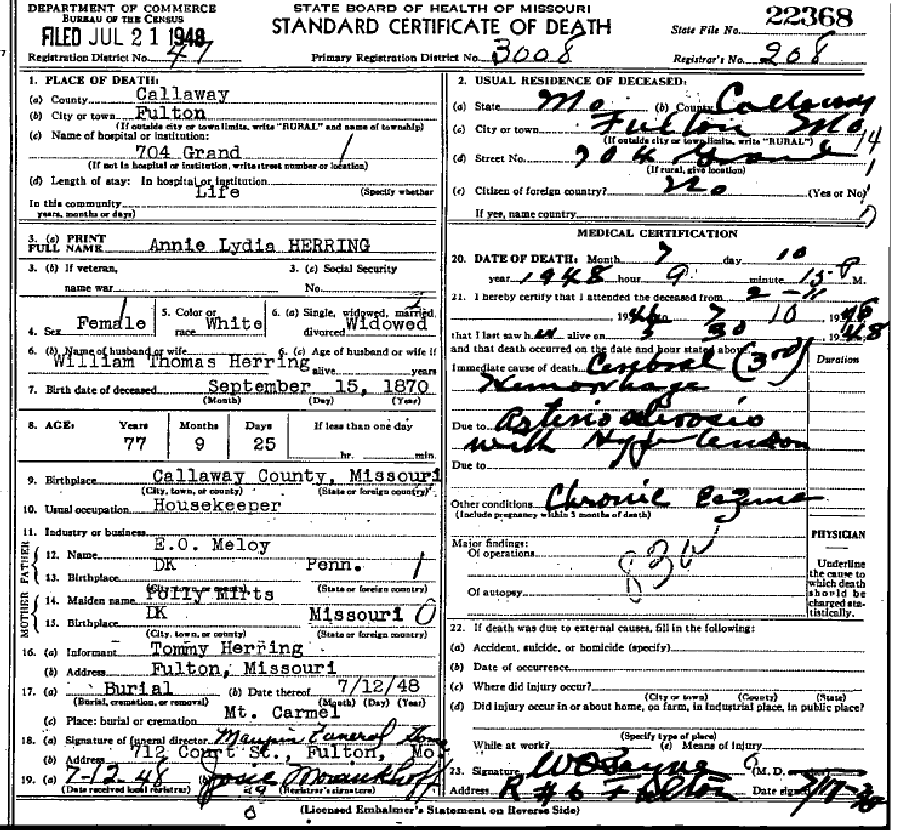 DEPARTMENT OF COMMERCE
BUREAU OF THE CENSUS
FILED JUL 21 1948
Registration District No. 47
STATE BOARD OF HEALTH OF MISSOURI
STANDARD CERTIFICATE OF DEATH
Primary Registration District No. 3008
State File No. 22368
Registrar's No. 208
1. PLACE OF DEATH:
(a) County Callaway
(b) City or town Fulton
(If outside city or town limits, write "RURAL" and name of township)
(c) Name of hospital or institution:
704 Grand
(If not in hospital or institution, write street number or location)
(d) Length of stay: In hospital or institution
Life (Specify whether
In this community
years, months or days)
3. (a) PRINT FULL NAME Annie Lydia HERRING
3. (b) If veteran, name war
3. (c) Social Security No.
4. Sex Female
5. Color or race White
6. (a) Single, widowed, married, divorced Widowed
6. (b) Name of husband or wife William Thomas Herring
6. (c) Age of husband or wife if alive years
7. Birth date of deceased September 15, 1870
(Month) (Day) (Year)
8. AGE: Years Months Days If less than one day
77 9 25 hr. min.
9. Birthplace Callaway County, Missouri
(City, town, or county) (State or foreign country)
10. Usual occupation Housekeeper
11. Industry or business
FATHER
12. Name E.O. Meloy
13. Birthplace DK Penn. 1
(State or foreign country)
MOTHER
14. Maiden name Polly
15. Birthplace DK Missouri 0
(City, town, or county) (State or foreign country)
16. (a) Informant Tommy Herring
(b) Address Fulton, Missouri
17. (a) Burial (b) Date thereof 7/12/48
(Burial, cremation, or removal) (Month) (Day) (Year)
(c) Place: burial or cremation Mt. Carmel
18. (a) Signature of funeral director Maupin Funeral Home
(b) Address 712 Court St., Fulton, Mo
19. (a) 7-12-48 (b) Josie
(Date received local registrar) (Registrar's signature)
2. USUAL RESIDENCE OF DECEASED:
(a) State Mo (b) County Callaway
(c) City or town Fulton Mo 14
(If outside city or town limits, write "RURAL")
(d) Street No. 704 Grand
(If rural, give location)
(e) Citizen of foreign country? No (Yes or No)
If yes, name country
MEDICAL CERTIFICATION
20. DATE OF DEATH: Month 7 day 10
year 1948 hour 9 minute 15 P M.
21. I hereby certify that I attended the deceased from 2-
1946 to 7 10 1948
that I last saw h alive on 30 1948
and that death occurred on the date and hour stated above.
Duration
Immediate cause of death Cerebral (3rd)
Hemorrhage
Due to Arteriosclerosis
with Hypertension
Due to
Other conditions Chronic Eczema
(Include pregnancy within 3 months of death)
Major findings:
Of operations
Of autopsy
PHYSICIAN
Underline the cause to which death should be charged statistically.
22. If death was due to external causes, fill in the following:
(a) Accident, suicide, or homicide (specify)
(b) Date of occurrence
(c) Where did injury occur?
(City or town) (County) (State)
(d) Did injury occur in or about home, on farm, in industrial place, in public place?
(Specify type of place)
While at work? (e) Means of injury
23. Signature (M. D.
Address R #6 Fulton Date signed
(Licensed Embalmer's Statement on Reverse Side)